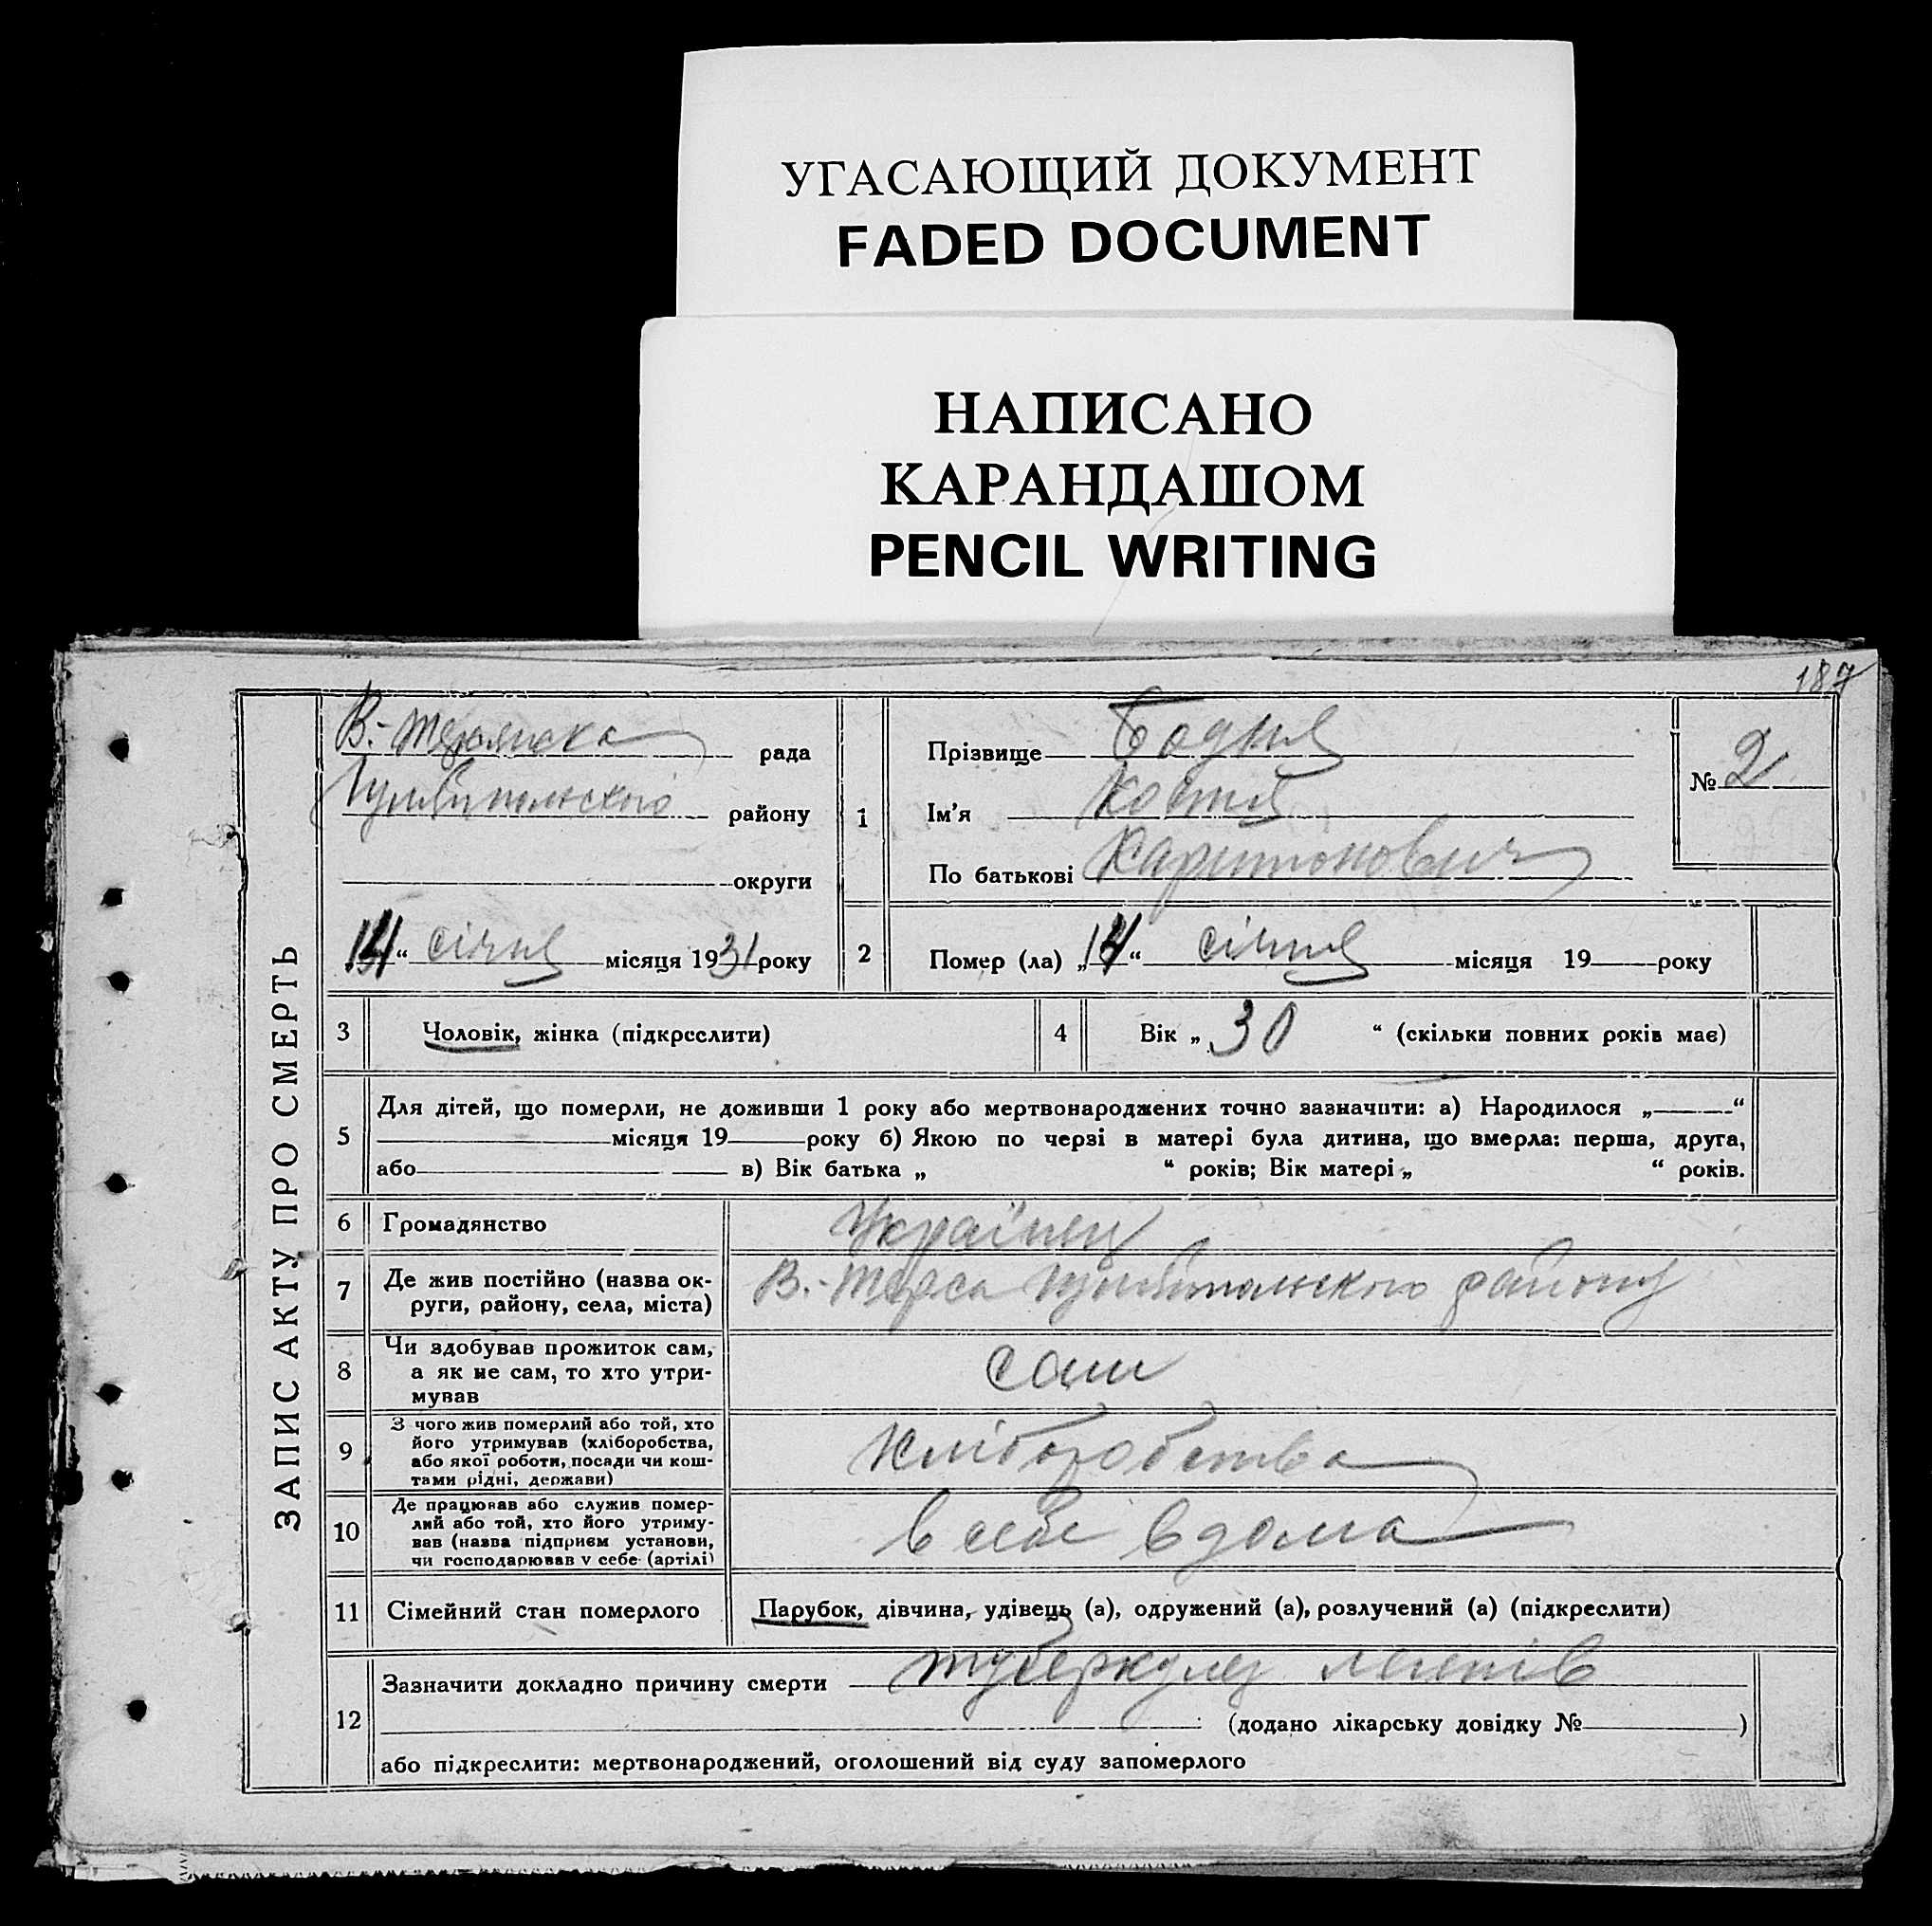 УГАСАЮЩИЙ ДОКУМЕНТ
FADED DOCUMENT
НАПИСАНО
КАРАНДАШОМ
PENCIL WRITING
187
ЗАПИС АКТУ ПРО СМЕРТЬ
В.-Терянска рада
району
округи
1
Прізвище Бодня
Ім'я Костя
По батькові Харитонович
№ 2
14 “ січня місяця 1931 року
2 Помер (ла) „14“ січня місяця 19 року
3 Чоловік, жінка (підкреслити)
4 Вік „ 30 “ (скільки повних років має)
5
Для дітей, що померли, не доживши 1 року або мертвонароджених точно зазначити: а) Народилося „ “
місяця 19 року б) Якою по черзі в матері була дитина, що вмерла: перша, друга,
або в) Вік батька „ “ років; Вік матері „ “ років.
6 Громадянство Українець
7 Де жив постійно (назва ок-
руги, району, села, міста) В.-Терса району
8 Чи здобував прожиток сам,
а як не сам, то хто утри-
мував
сам
9 З чого жив померлий або той, хто
його утримував (хліборобства,
або якої роботи, посади чи кош-
тами рідні, держави)
Хліборобства
10 Де працював або служив помер-
лий або той, хто його утриму-
вав (назва підприєм установи,
чи господарював у себе (артілі)
в себе вдома
11 Сімейний стан померлого Парубок, дівчина, удівець (а), одружений (а), розлучений (а) (підкреслити)
12 Зазначити докладно причину смерти туберкулез легенів
(додано лікарську довідку № )
або підкреслити: мертвонароджений, оголошений від суду запомерлого